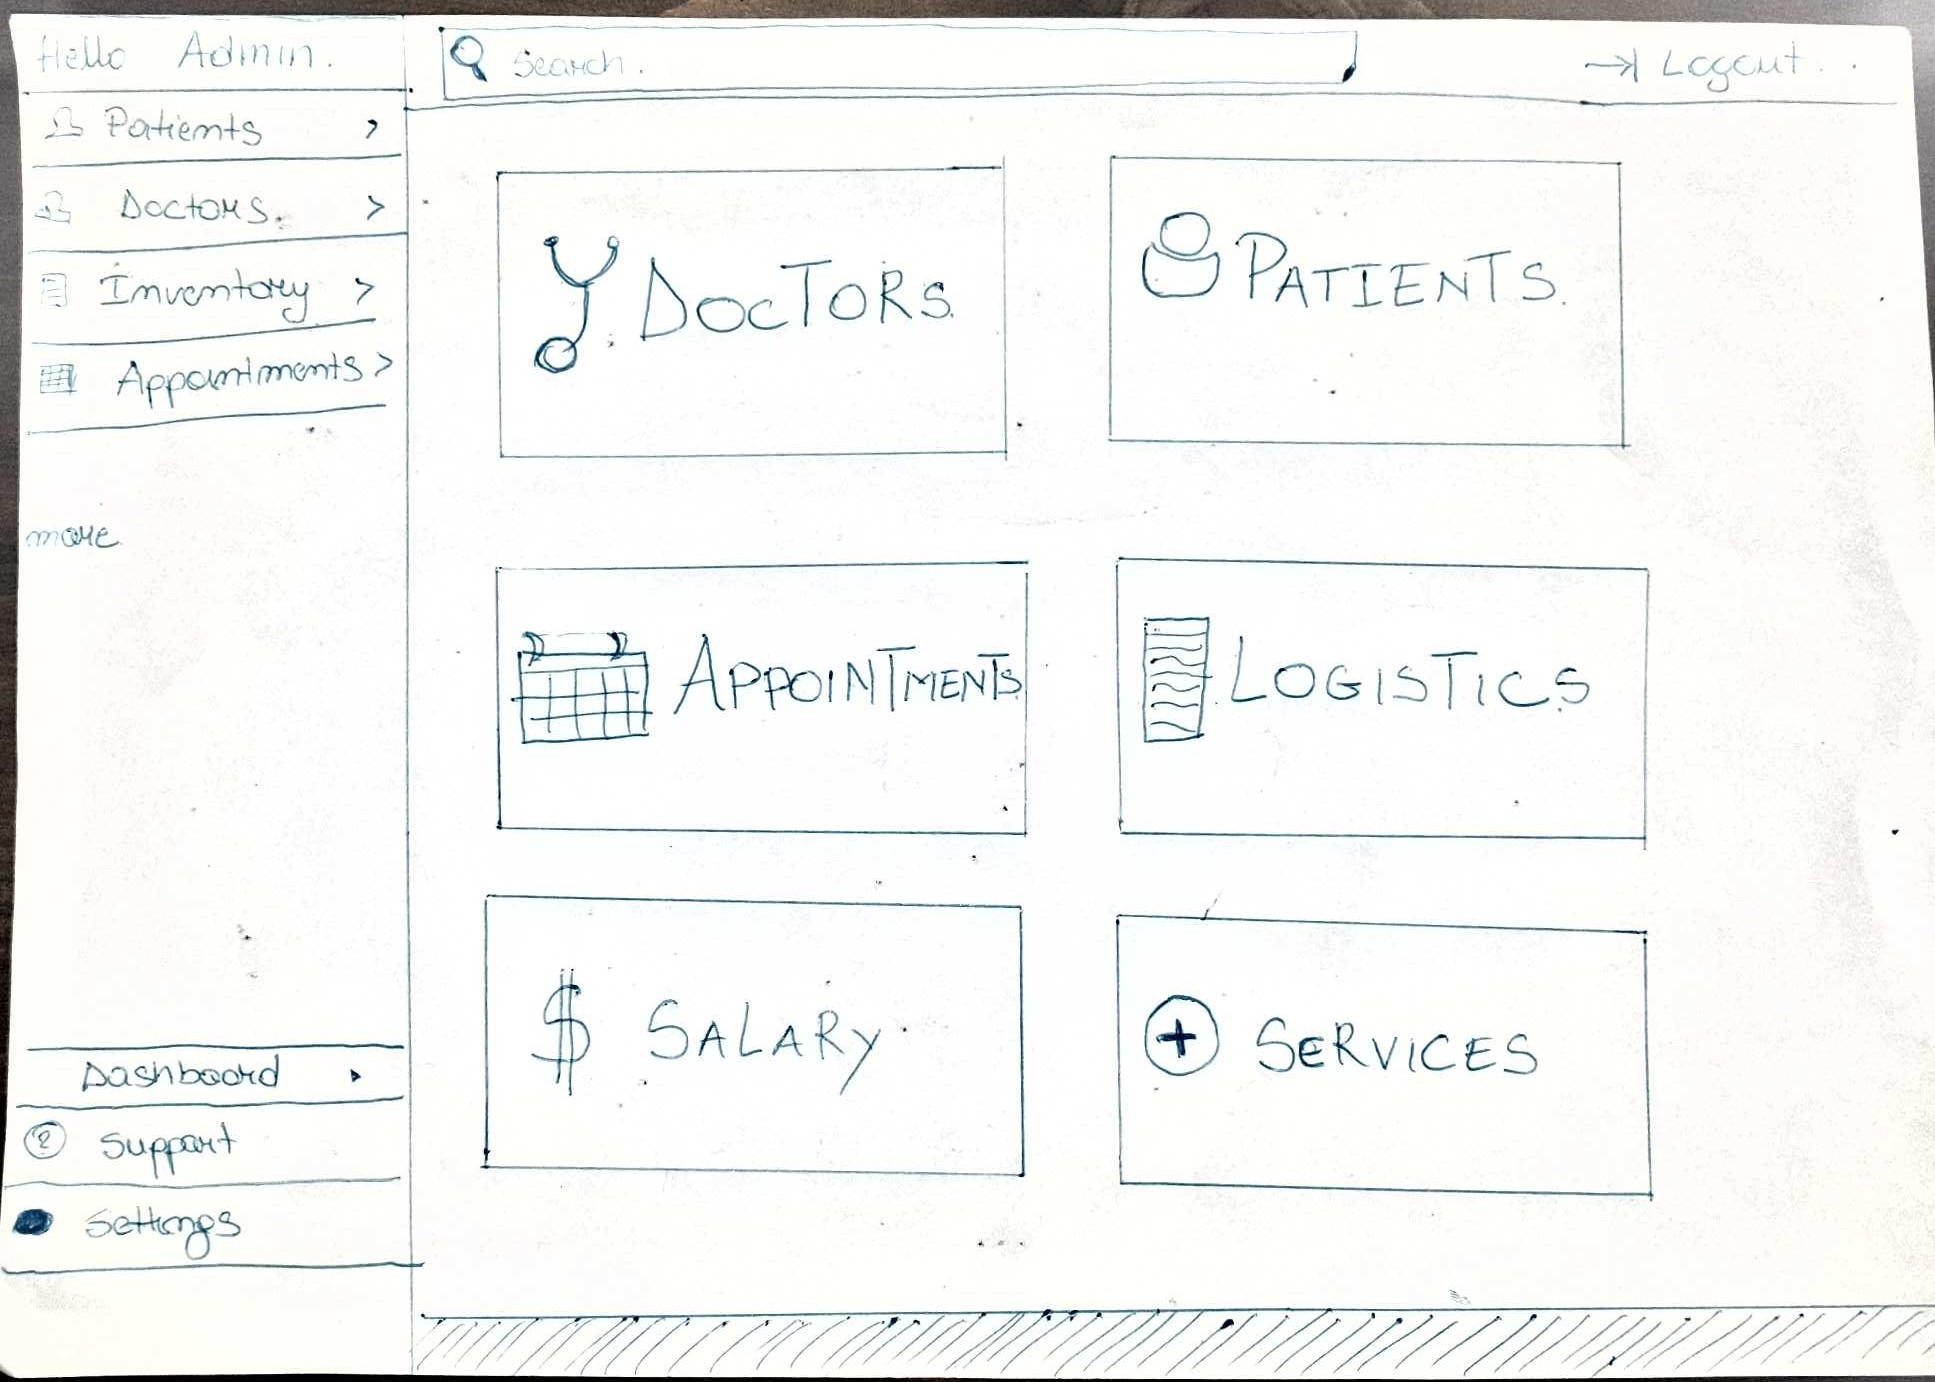 Hello Admin.
Search.
Logout..
Patients >
Doctors. >
Inventory >
Appointments >
more
Dashboard
? Support
Settings
DOCTORS.
PATIENTS.
APPOINTMENTS
LOGISTICS
$ SALARY
+ SERVICES